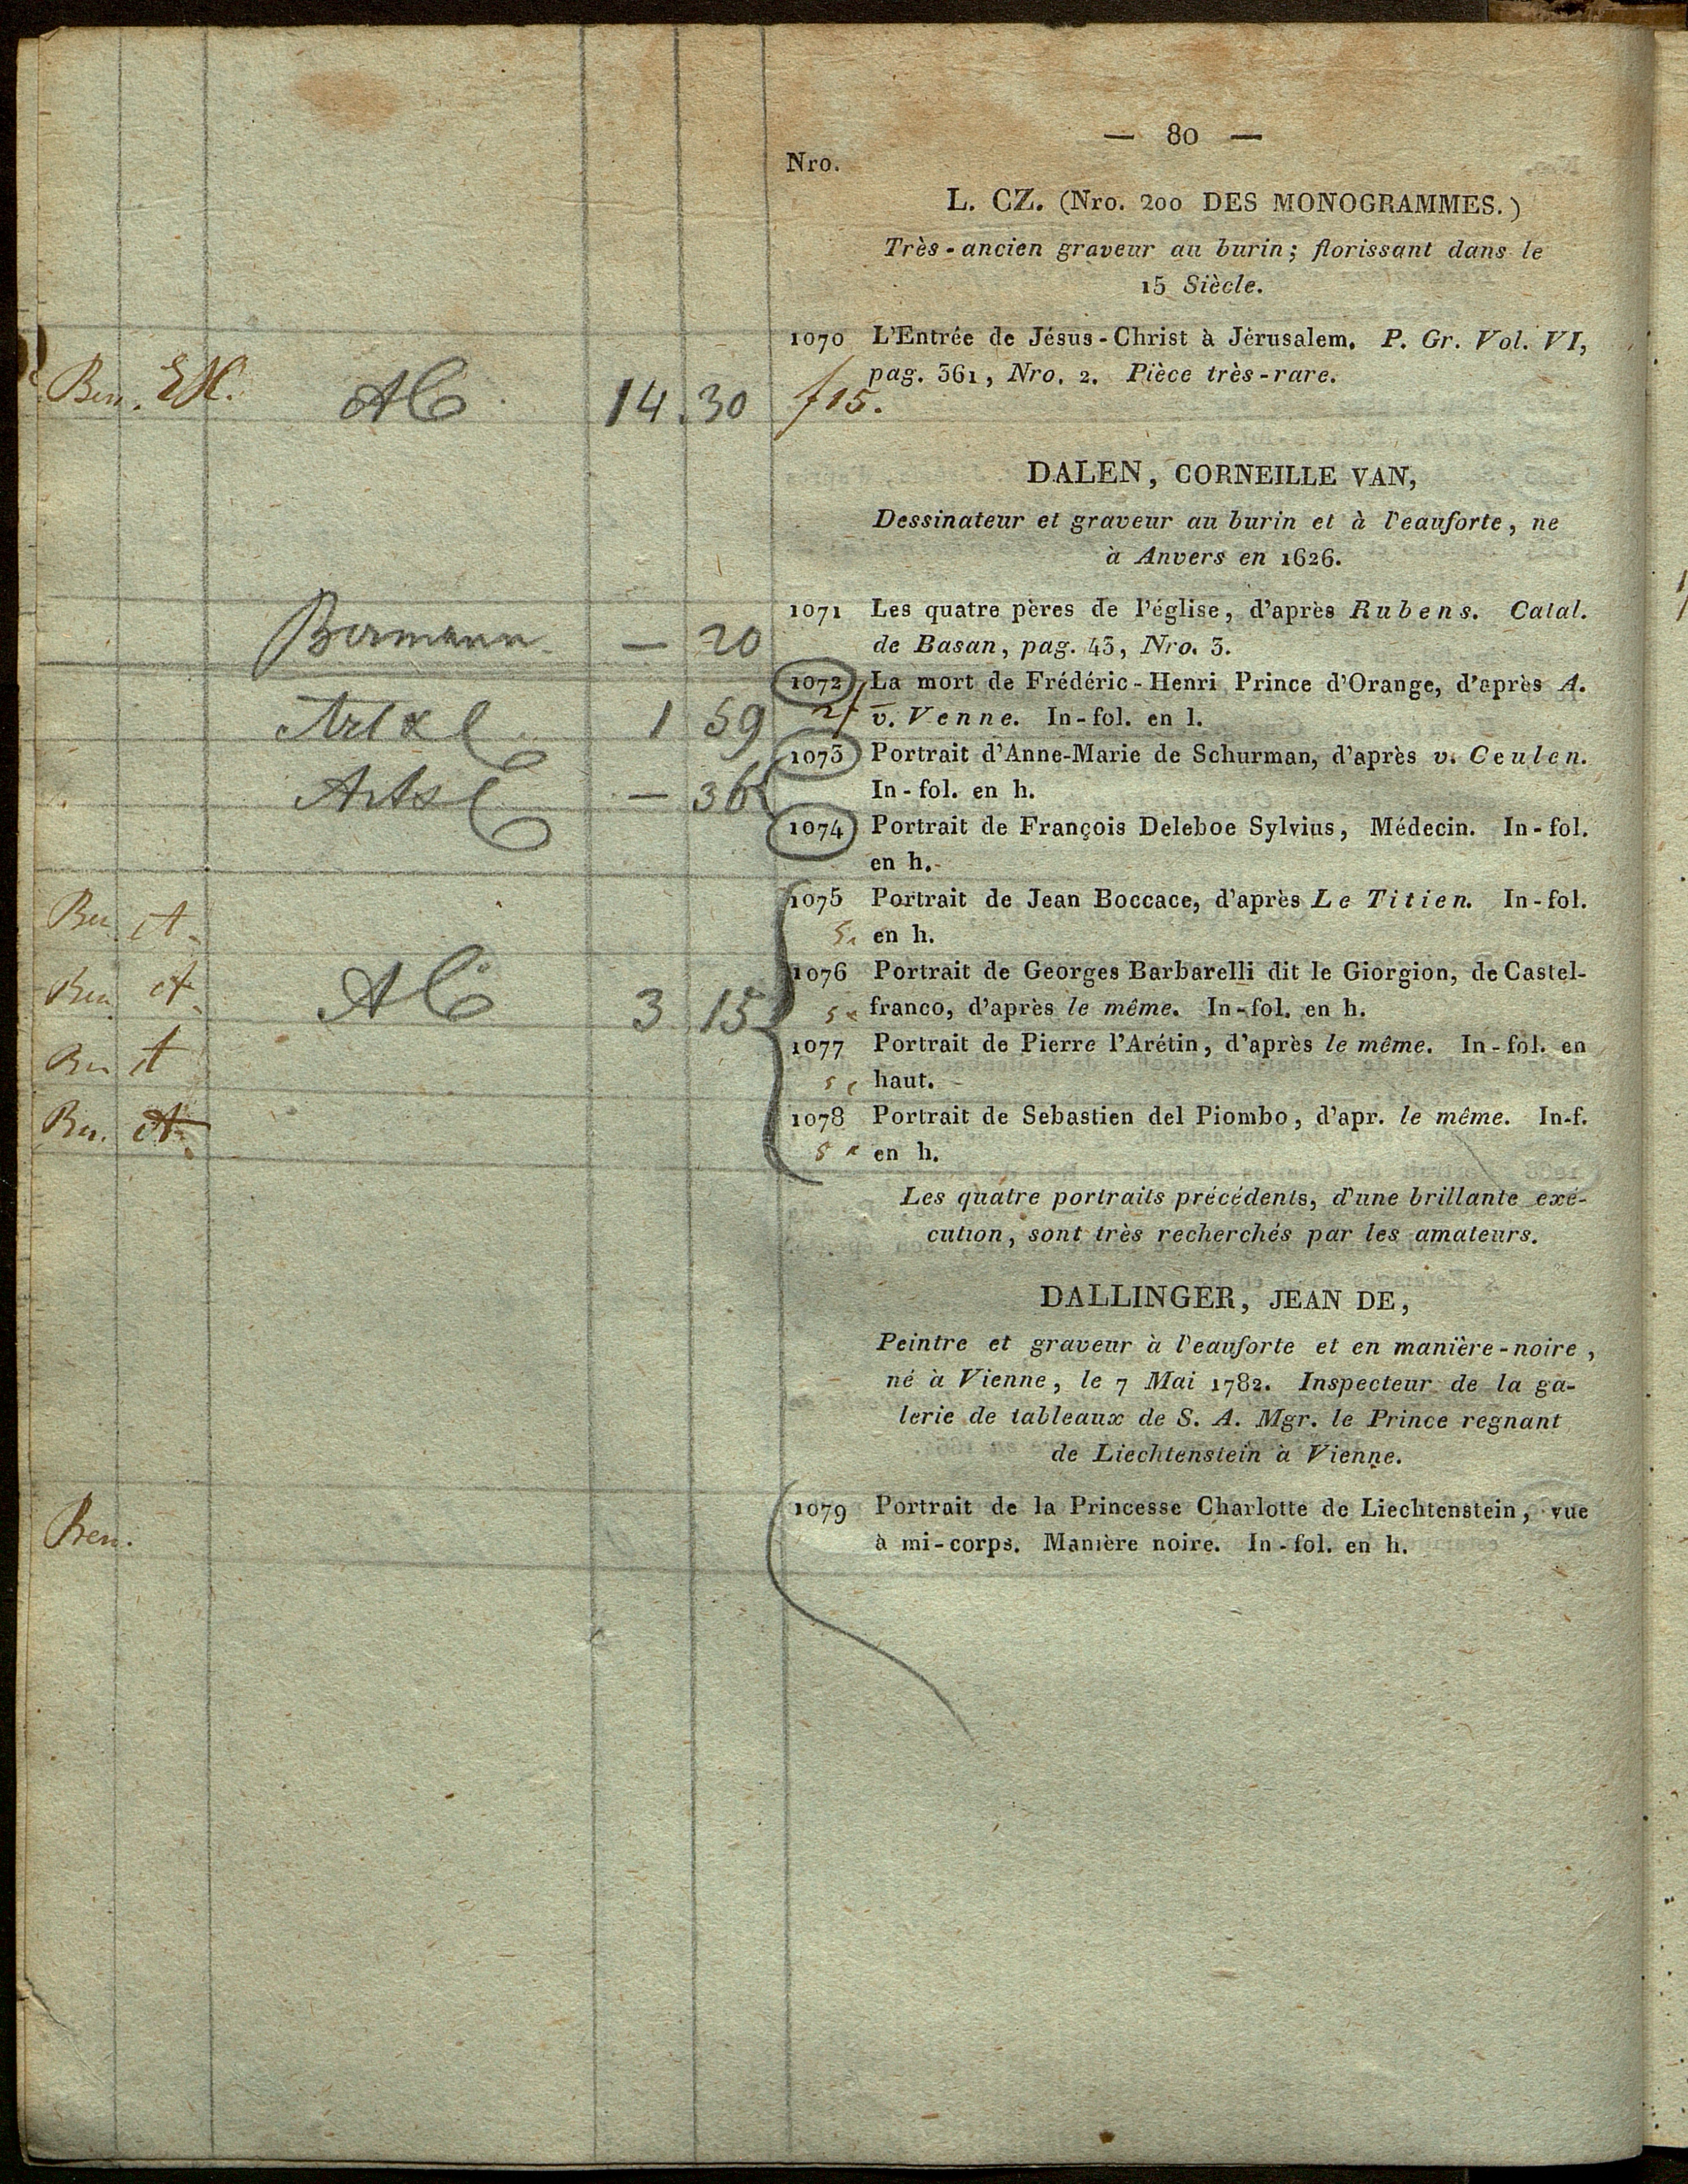 — 80 —
Nro.
L. CZ. (Nro. 200 DES MONOGRAMMES.)
Très-ancien graveur au burin; florissant dans le
15 Siècle.
1070 L'Entrée de Jésus-Christ à Jérusalem. P. Gr. Vol. VI,
pag. 361, Nro. 2. Pièce très-rare.
Ben. AC 14.30 f15.
DALEN, CORNEILLE VAN,
Dessinateur et graveur au burin et à l'eauforte, ne
à Anvers en 1626.
1071 Les quatre pères de l'église, d'après Rubens. Catal.
Bermann — 20 de Basan, pag. 43, Nro. 3.
1072 La mort de Frédéric-Henri Prince d'Orange, d'après A.
1 59 2f v. Venne. In-fol. en l.
1073 Portrait d'Anne-Marie de Schurman, d'après v. Ceulen.
— 36 In-fol. en h.
1074 Portrait de François Deleboe Sylvius, Médecin. In-fol.
en h.
1075 Portrait de Jean Boccace, d'après Le Titien. In-fol.
Ben A 5. en h.
1076 Portrait de Georges Barbarelli dit le Giorgion, de Castel-
Ben A AC 3 15 5 franco, d'après le même. In-fol. en h.
1077 Portrait de Pierre l'Arétin, d'après le même. In-fol. en
Ben A 5 haut.
1078 Portrait de Sebastien del Piombo, d'apr. le même. In-f.
Ben. A 5 en h.
Les quatre portraits précédents, d'une brillante exé-
cution, sont très recherchés par les amateurs.
DALLINGER, JEAN DE,
Peintre et graveur à l'eauforte et en manière-noire,
né à Vienne, le 7 Mai 1782. Inspecteur de la ga-
lerie de tableaux de S. A. Mgr. le Prince regnant
de Liechtenstein à Vienne.
1079 Portrait de la Princesse Charlotte de Liechtenstein, vue
Ben. à mi-corps. Manière noire. In-fol. en h.